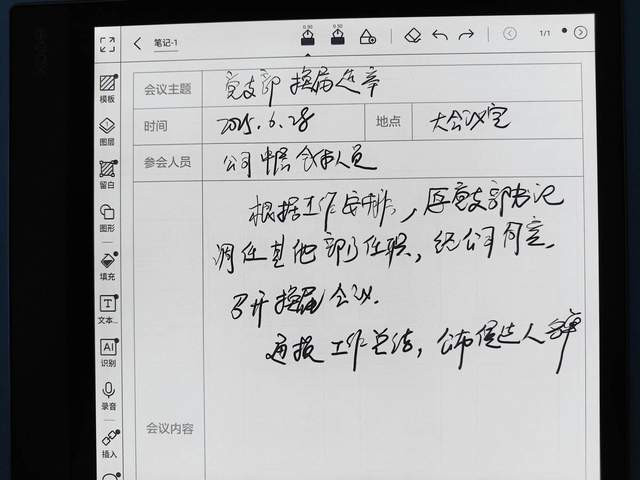 笔记-1
0.50 0.50
1/1
模板
图层
留白
图形
填充
文本...
AI
识别
录音
插入
会议主题 党支部换届选举
时间 2025.6.28 地点 大会议室
参会人员 公司中层 全体人员
会议内容
根据工作安排,原党支部书记
调任其他部门任职,经公司研究。
召开换届会议.
通报工作总结,公布候选人名单